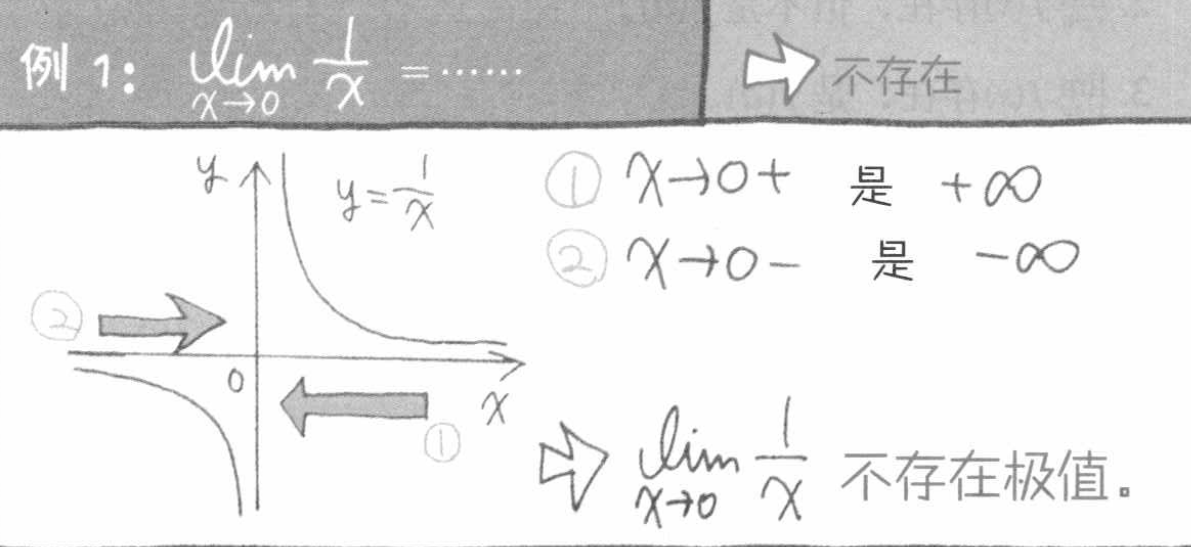 例 1: lim x→0 1/x = ……
⇨ 不存在
y
y = 1/x
① x→0+ 是 +∞
② x→0- 是 -∞
②
0
x
①
⇨ lim x→0 1/x 不存在极值。